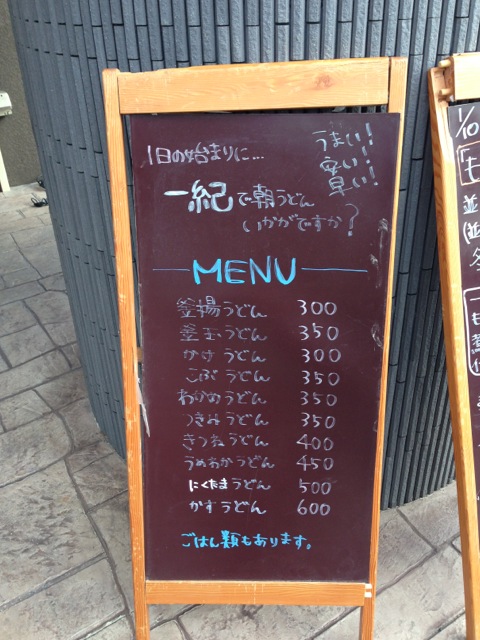 1日の始まりに…
うまい!
安い!
早い!
一紀で朝うどん
いかがですか?
MENU
釜揚うどん 300
釜玉うどん 350
かけうどん 300
こぶうどん 350
わかめうどん 350
つきみうどん 350
きつねうどん 400
うめおかうどん 450
にくたまうどん 500
かすうどん 600
ごはん類もあります。
1/10
「も
並